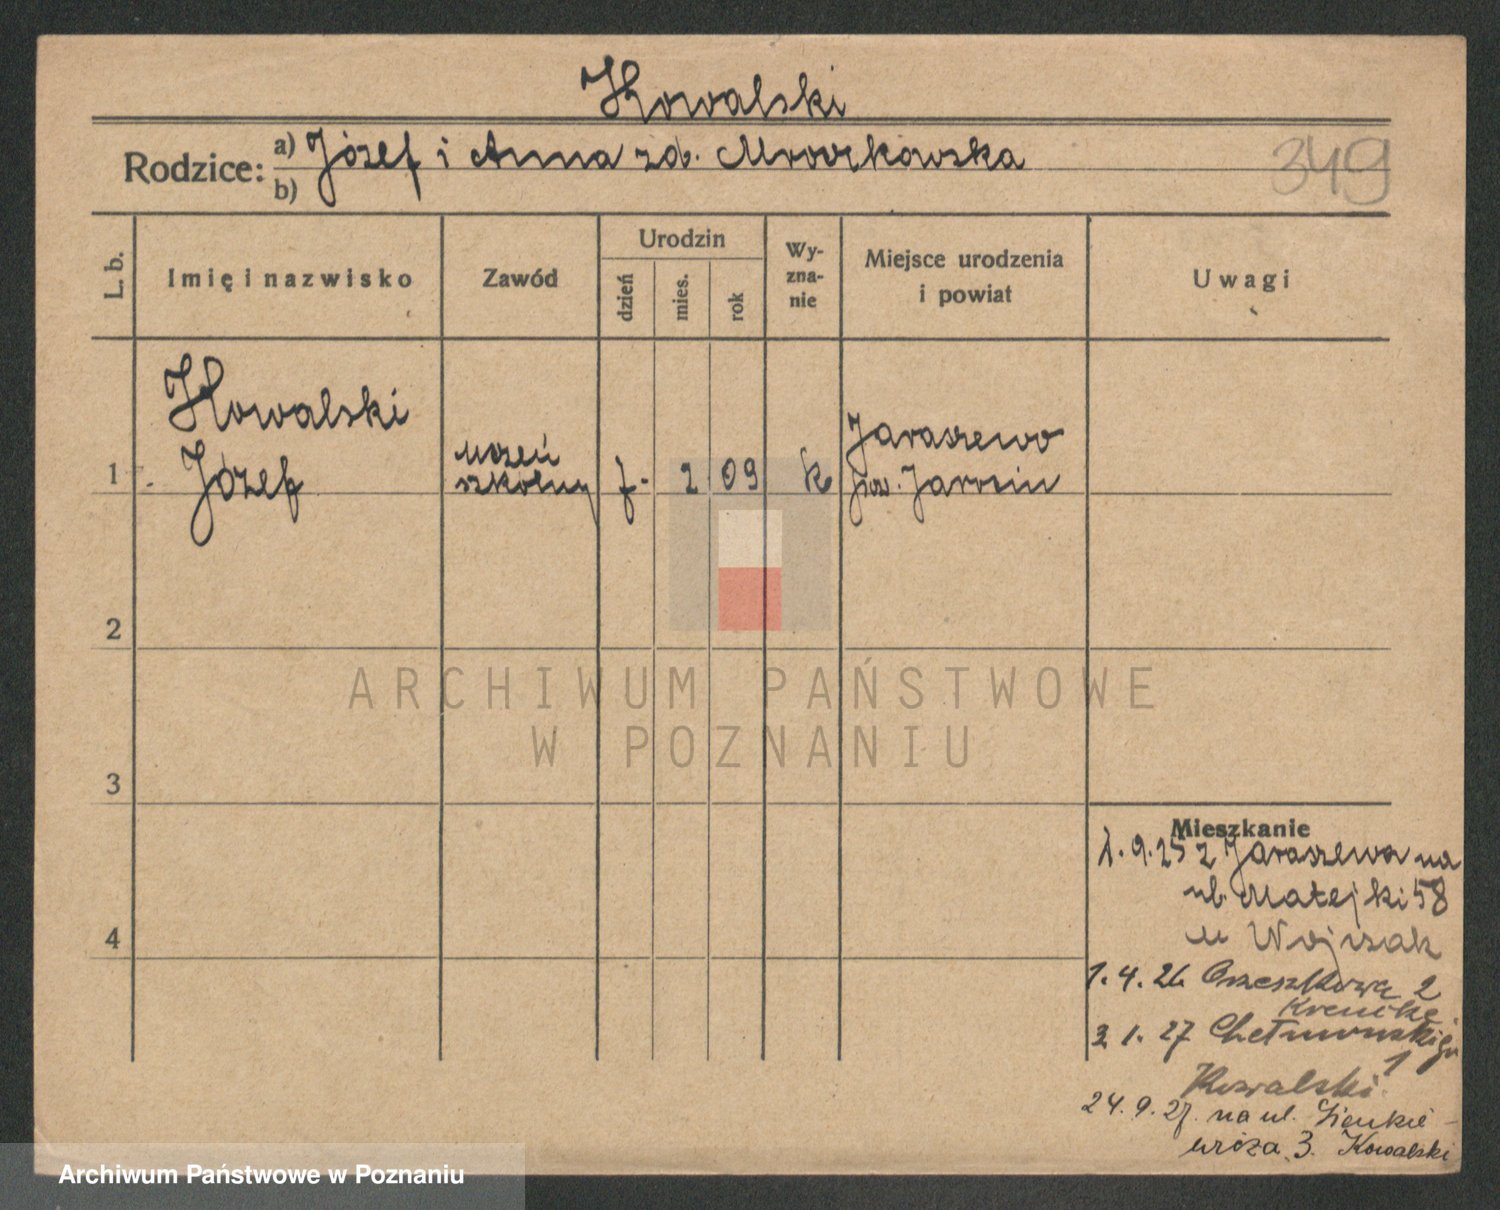 Kowalski
Rodzice: a) Józef i Anna zd. Mroczkowska
b)
349
L. b.
Imię i nazwisko
Zawód
Urodzin
dzień
mies.
rok
Wy-
zna-
nie
Miejsce urodzenia
i powiat
Uwagi
1
Kowalski
Józef
uczeń
szkolny
7. 2 09
k
Jaraszewo
pow. Jarocin
2
3
4
ARCHIWUM PAŃSTWOWE
W POZNANIU
Mieszkanie
1.9.25 z Jaraszewa na
ul. Matejki 58
u Wojczak
1.4.26 Orzeszkowa 2
3 1.27 Chełmońskiego
1
Kowalski
24.9.27. na ul. Sienkie-
wicza 3. Kowalski
Archiwum Państwowe w Poznaniu